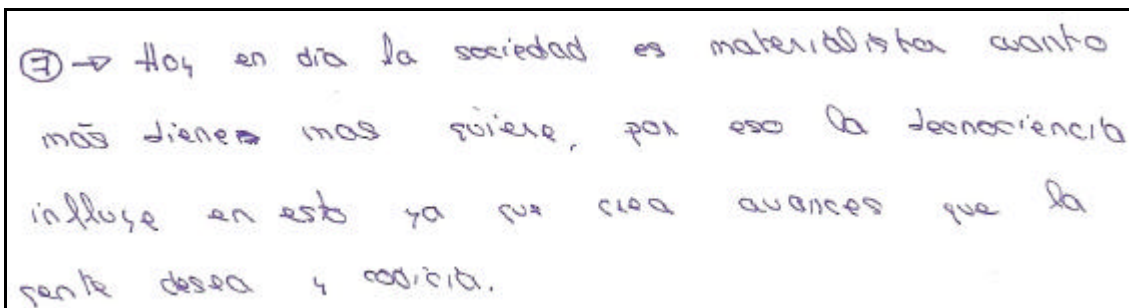 ⑦ → Hoy en día la sociedad es materialista cuanto
más tiene mas quiere, por eso la tecnociencia
influye en esto ya que crea avances que la
gente desea y codicia.